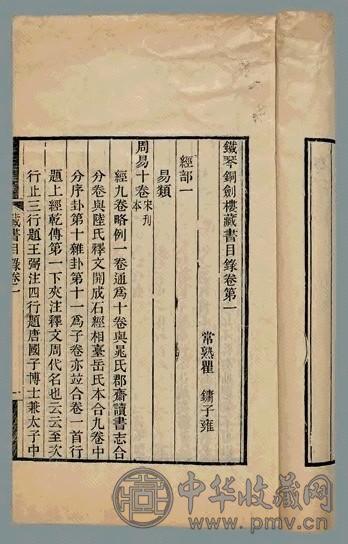 鐵琴銅劍樓藏書目錄卷第一
常熟瞿鏞子雍
經部一
易類
周易十卷宋刊本
經九卷略例一卷通爲十卷與晁氏郡齋讀書志合
分卷與陸氏釋文開成石經相臺岳氏本合九卷中
分序卦第十雜卦第十一爲子卷亦竝合卷一首行
題上經乾傳第一下夾注釋文周代名也云云至次
行止三行題王弼注四行題唐國子博士兼太子中
藏書目錄卷一
一
中华收藏网
www.pmv.cn